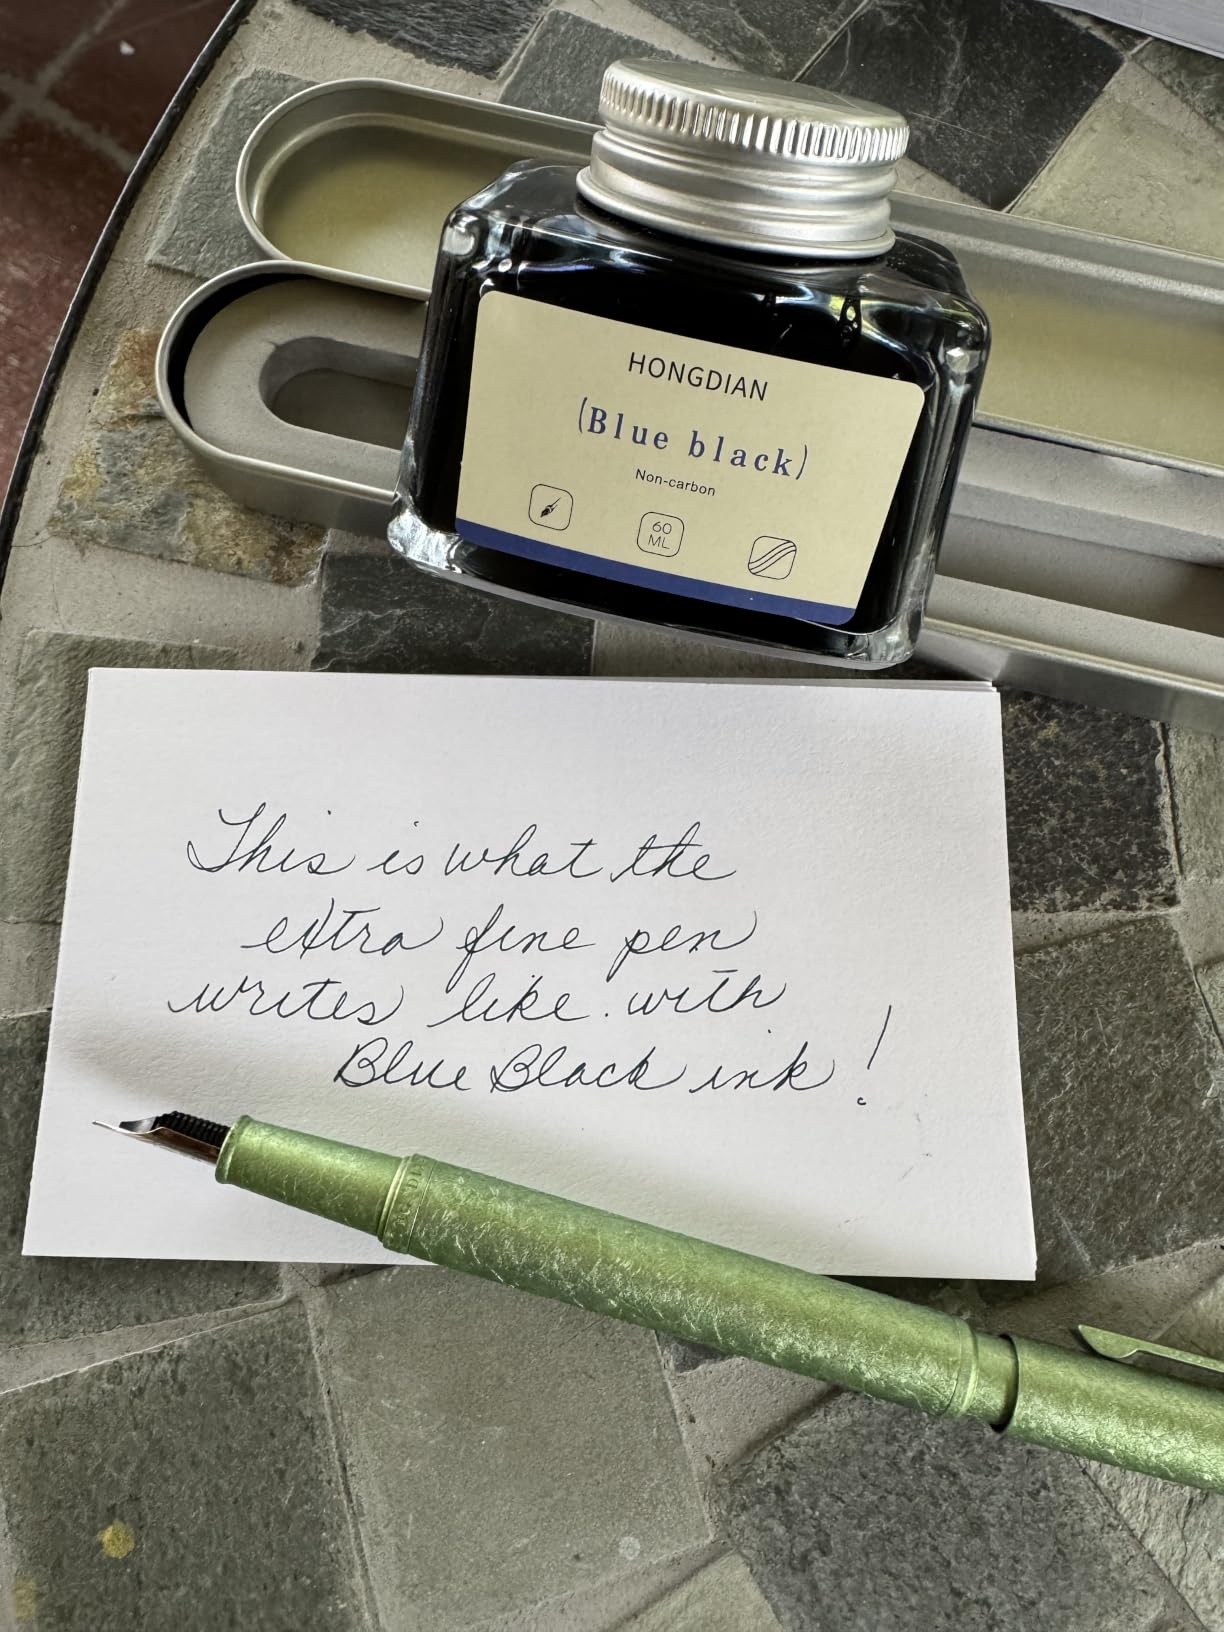 HONGDIAN
(Blue black)
Non-carbon
60
ML
This is what the
extra fine pen
writes like. with
Blue Black ink!